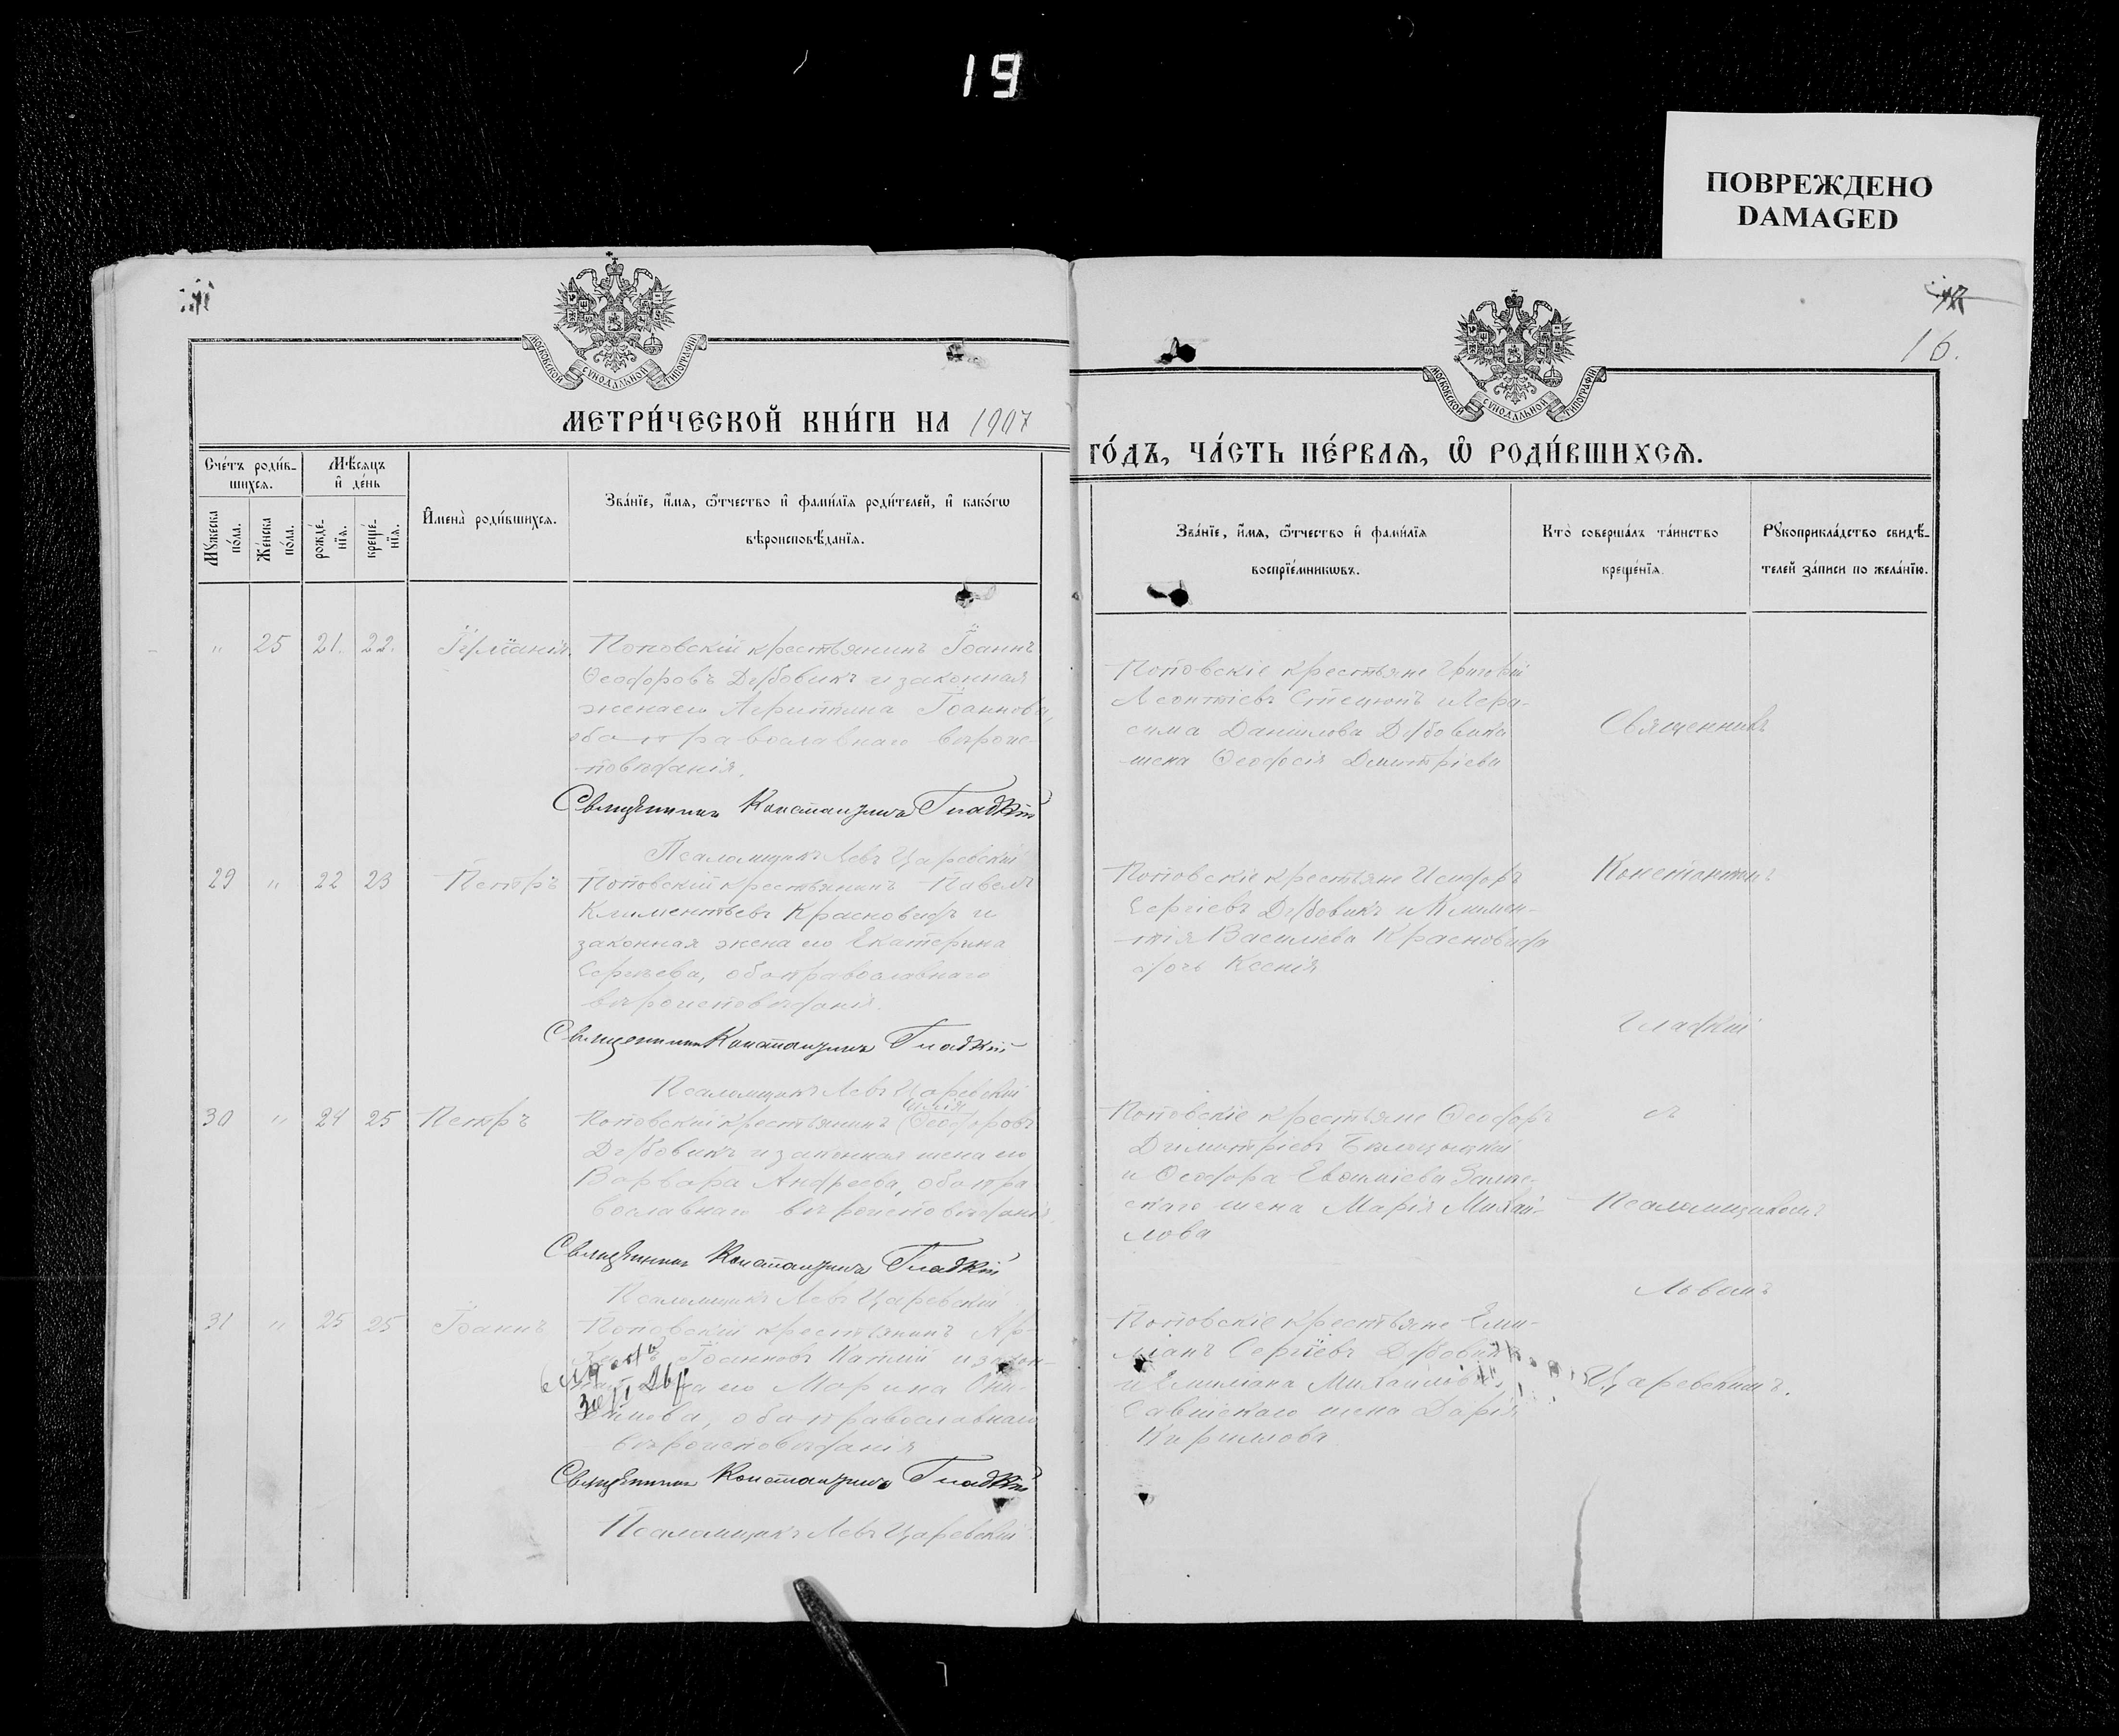 19
ПОВРЕЖДЕНО
DAMAGED
16.
МОСКОВСКОЙ СУНОДАЛЬНОЙ ТИПОГРАФІИ
МОСКОВСКОЙ СУНОДАЛЬНОЙ ТИПОГРАФІИ
МЕТРИ́ЧЕСКОЙ КНИ́ГИ НА 1907
ГО́ДЪ, ЧА́СТЬ ПЕ́РВАѦ, Ѡ҃ РОДИ́ВШИХСѦ.
Сче́тъ роди́в-
шихсѧ.
Мѣ́сѧцъ
и҆ де́нь
Мꙋ́жеска по́ла.
Же́нска по́ла.
рожде́-нїѧ.
креще́-нїѧ.
И҆мена̀ роди́вшихсѧ.
Зва́нїе, и҆́мѧ, ѻ҆́тчество и҆ фами́лїѧ роди́телей, и҆ како́гѡ
вѣроисповѣ́данїѧ.
Зва́нїе, и҆́мѧ, ѻ҆́тчество и҆ фами́лїѧ
воспрїе́мникѡвъ.
Кто̀ соверша́лъ та́инство
креще́нїѧ.
Рꙋкоприкла́дство свидѣ́-
телей за́писи по жела́нїю.
" 25 21. 22.
Поповскій крестьянинъ Іоаннъ
Ѳеодоровъ Дербовикъ и законная
жена его Іоаннова,
оба православнаго вѣроис-
повѣданія.
Священникъ Константинъ Гладкій
Псаломщикъ Левъ Царевскій
Поповскіе крестьяне Григорій
Леонтіевъ и Гера-
сима Данилова Дербовика
жена Ѳеодосія Димитріева
Священникъ
29 " 22 23 Петръ
Поповскій крестьянинъ Павелъ
Климентьевъ Красновидъ и
законная жена его Екатерина
Сергѣева, оба православнаго
вѣроисповѣданія.
Священникъ Константинъ Гладкій
Псаломщикъ Левъ Царевскій
Поповскіе крестьяне Исидоръ
Сергіевъ Дербовикъ и Климен-
тія Василіева Красновида
дочь Ксенія
Константинъ
Гладкій
30 " 24 25 Петръ
Поповскій крестьянинъ Ѳеодоровъ
Дербовикъ и законная жена его
Варвара Андреева, оба пра
вославнаго вѣроисповѣданія.
Священникъ Константинъ Гладкій
Псаломщикъ Левъ Царевскій
Поповскіе крестьяне Ѳеодоръ
Димитріевъ
и Ѳеодора
скаго жена Марія Михай-
лова
съ
Псаломщикомъ
Львомъ
31 " 25 25 Іоаннъ
Поповскій крестьянинъ
Іоанновъ и закон-
жена его Марина
оба православнаго
вѣроисповѣданія
Священникъ Константинъ Гладкій
Псаломщикъ Левъ Царевскій
Поповскіе крестьяне Еми-
ліанъ Сергіевъ Дербовикъ
и Емиліана Михайлова
жена Дарія
Царевскимъ.